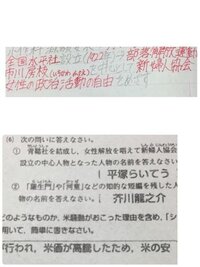 全国水平社設立(1922年)→部落解放運動
市川房枝(いちかわふさえ)を中心として新婦人協会
女性の政治活動の自由を
(6) 次の問いに答えなさい。
① 青鞜社を結成し、女性解放を唱えて新婦人協会
設立の中心人物となった人物の名前を答えなさい
平塚らいてう
② 「羅生門」や「河童」などの知的な短編を残した人
物の名前を答えなさい。
芥川龍之介
どのようなものか、米騒動がおこった理由を含め、「シ
用いて、簡単に書きなさい。
が行われ、米価が高騰したため、米の安